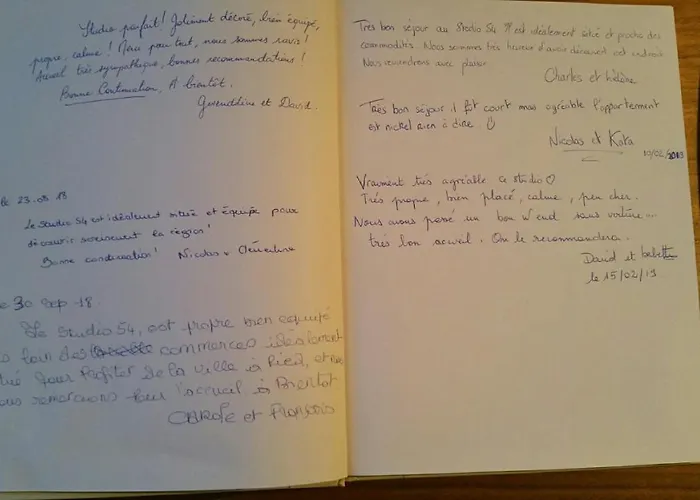 Studio parfait! Joliment décoré, bien équipé,
propre, calme! Merci pour tout, nous sommes ravis!
Accueil très sympathique, bonnes recommandations!
Bonne Continuation, A bientôt.
Gwenddine et David.
le 23.08.18
Le Studio 54 est idéalement situé et équipé pour
découvrir sereinement la région!
Bonne continuation! Nicolas & Clémentine
e 30 Sep-18.
Le Studio 54, est propre bien equipé
loin des commerces idéalement
tué pour Profiter de la ville à Pied, et
ous remercions pour l'accueil à Bientot
CAROLE et François
Très bon séjour au Studio 54 !!! est idéalement situé et proche des
commodités. Nous sommes très heureux d'avoir découvert cet endroit
Nous reviendrons avec plaisir.
Charles et hélène
Très bon séjour il fût court mais agréable l'appartement
est nickel rien à dire.
Nicolas et Kata
10/02/2019
Vraiment très agréable ce studio ♡
Très propre, bien placé, calme, peu cher.
Nous avons passé un bon w'end sans voiture...
très bon accueil. On le recommandera.
David et babeth
le 15/02/19